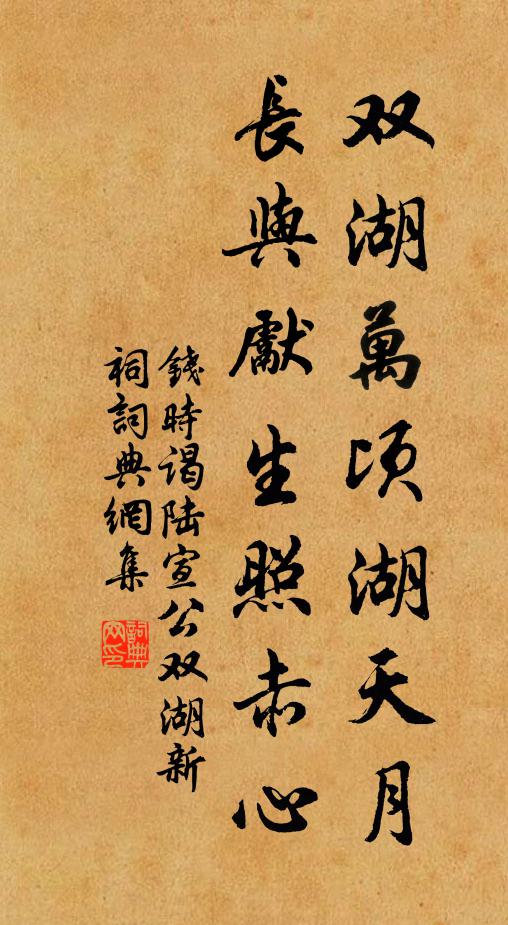 双湖萬頃湖天月
長與獻生照赤心
錢時谒陆宣公双湖新
祠詞典網集
詞典
网印